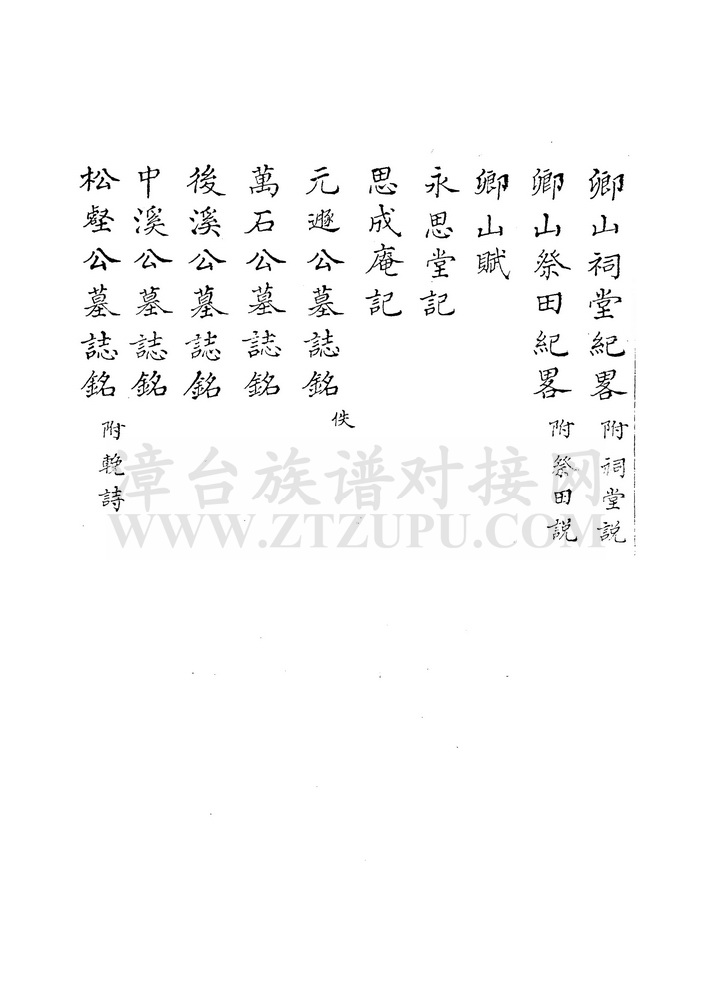 卿山祠堂紀畧 附祠堂説
卿山祭田紀畧 附祭田説
卿山賦
永思堂記
思成庵記
元遯公墓誌銘 佚
萬石公墓誌銘
後溪公墓誌銘
中溪公墓誌銘
松壑公墓誌銘 附輓詩
漳台族谱对接网
WWW.ZTZUPU.COM